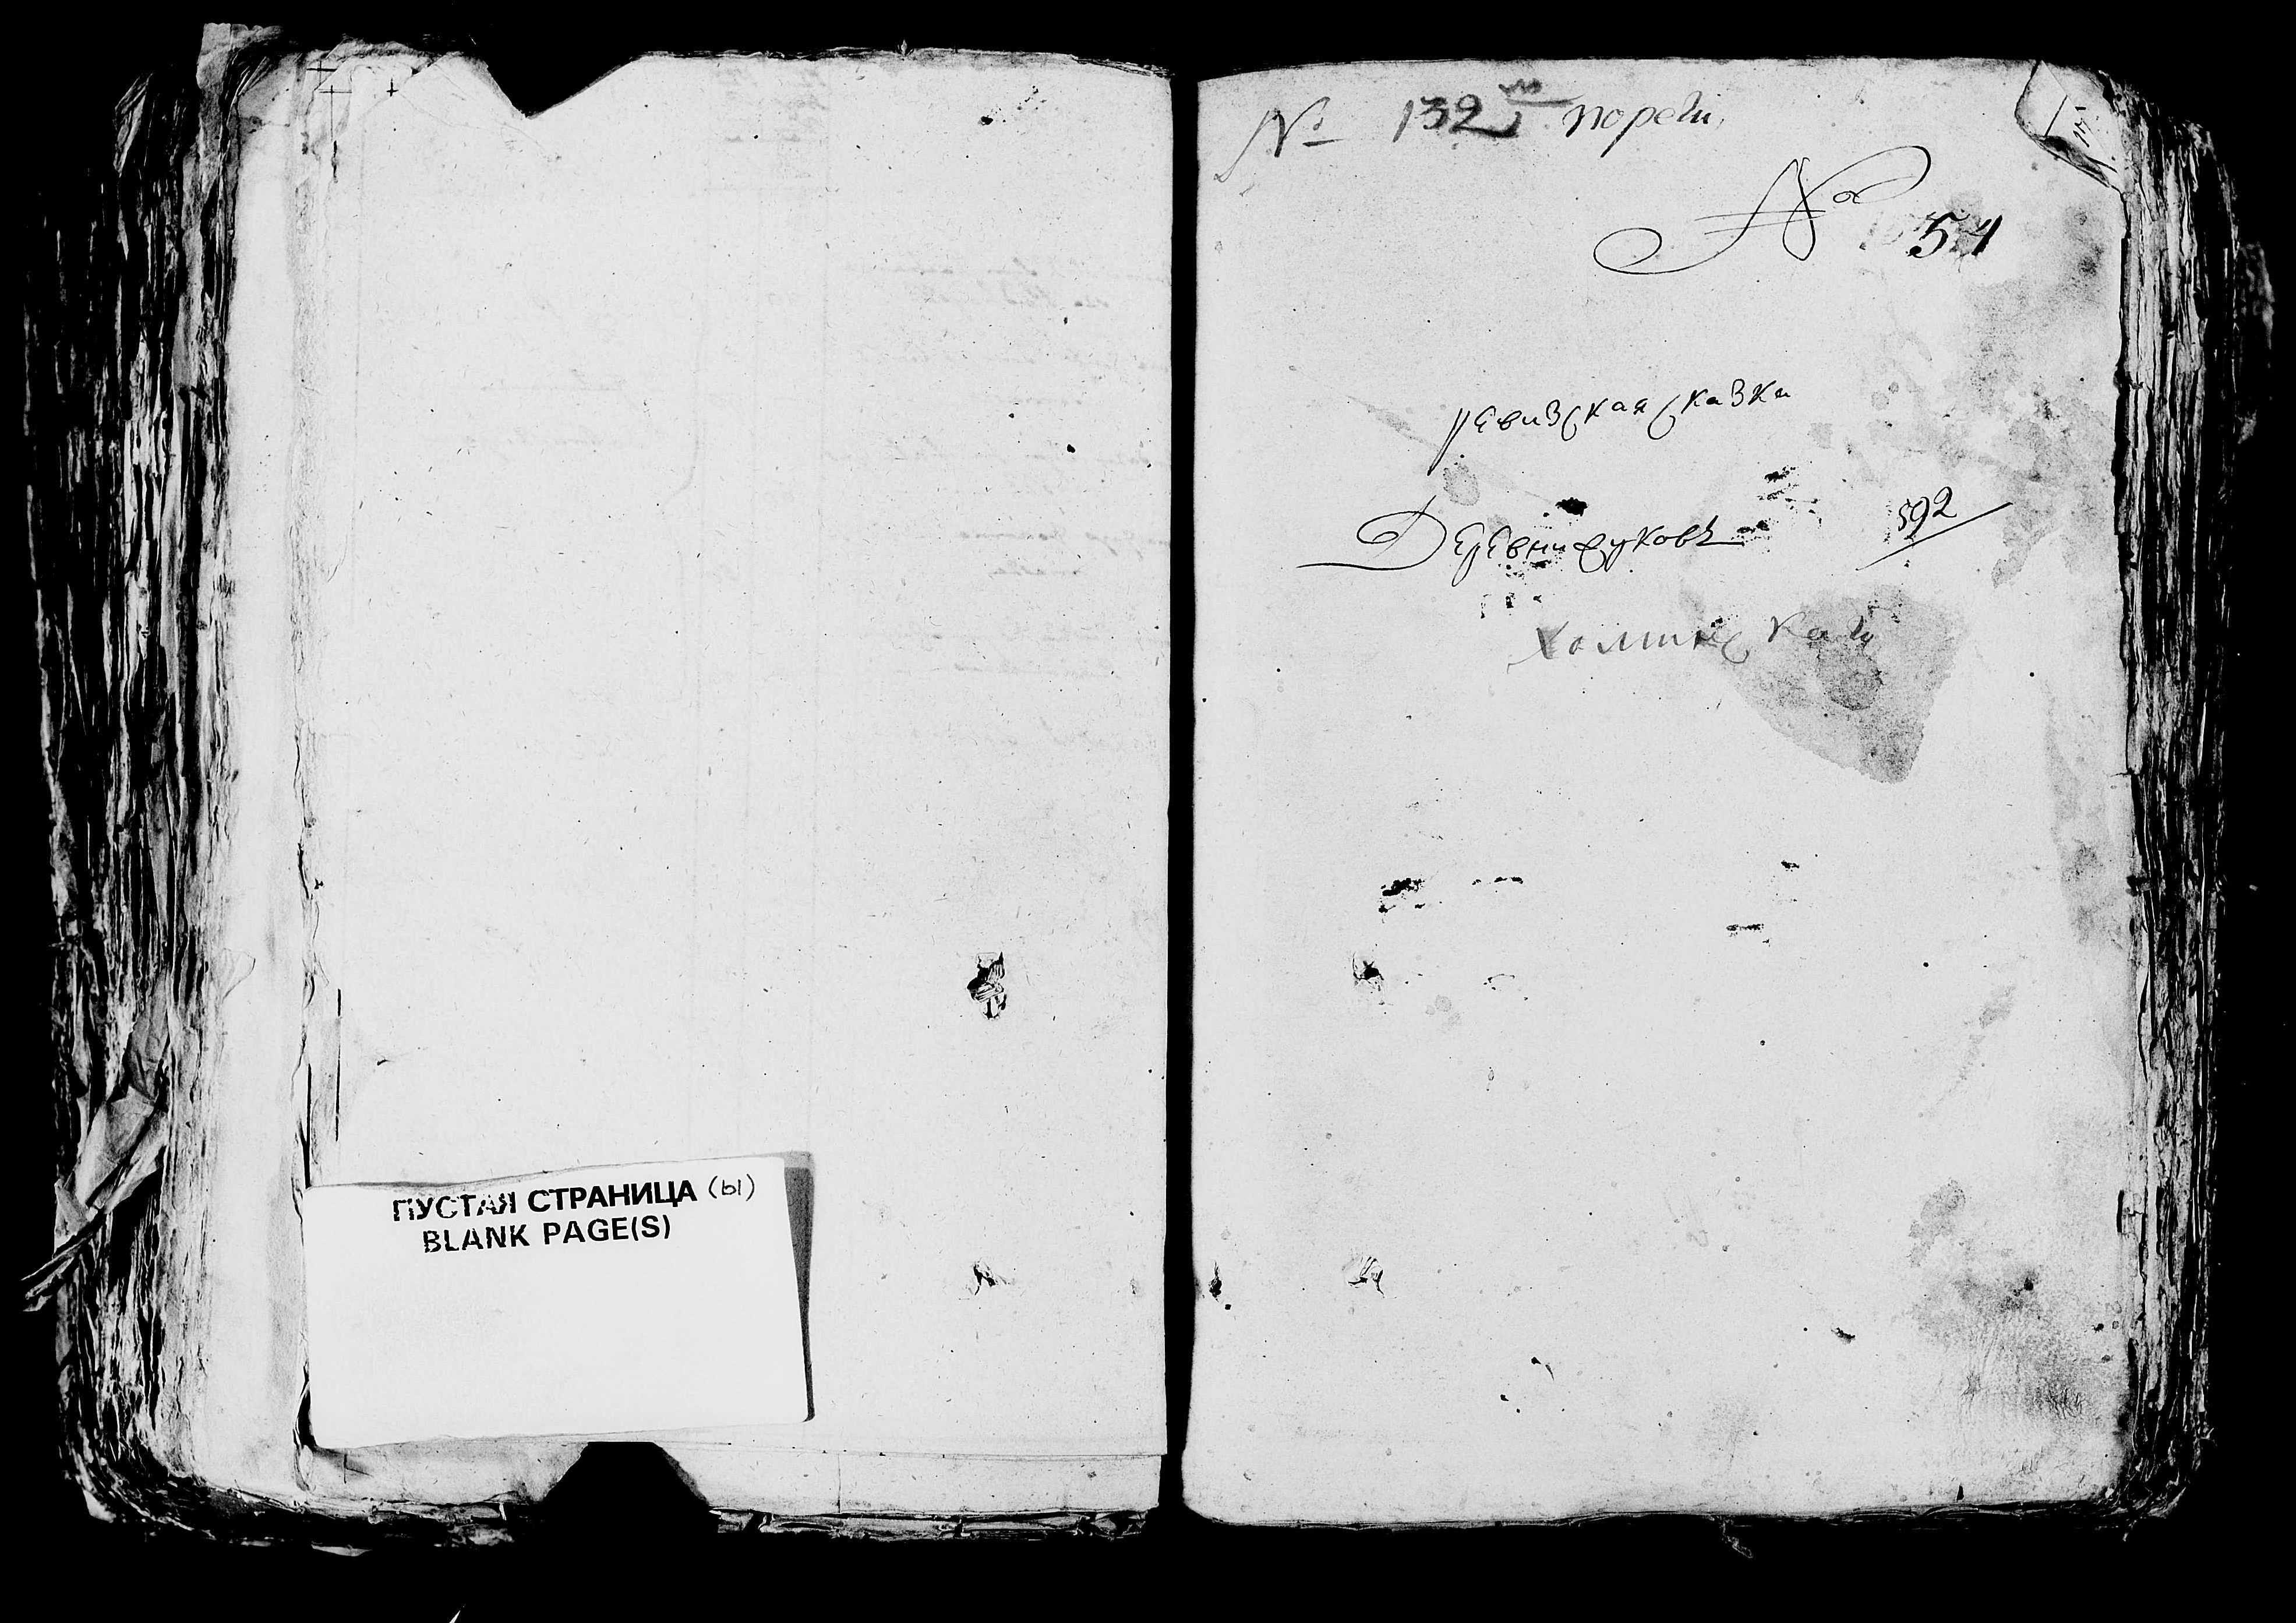 ПУСТАЯ СТРАНИЦА (Ы)
BLANK PAGE(S)
№ 132 й пореч
№ 54
ревизская сказка
Деревни фуковъ
592
Холминскаи